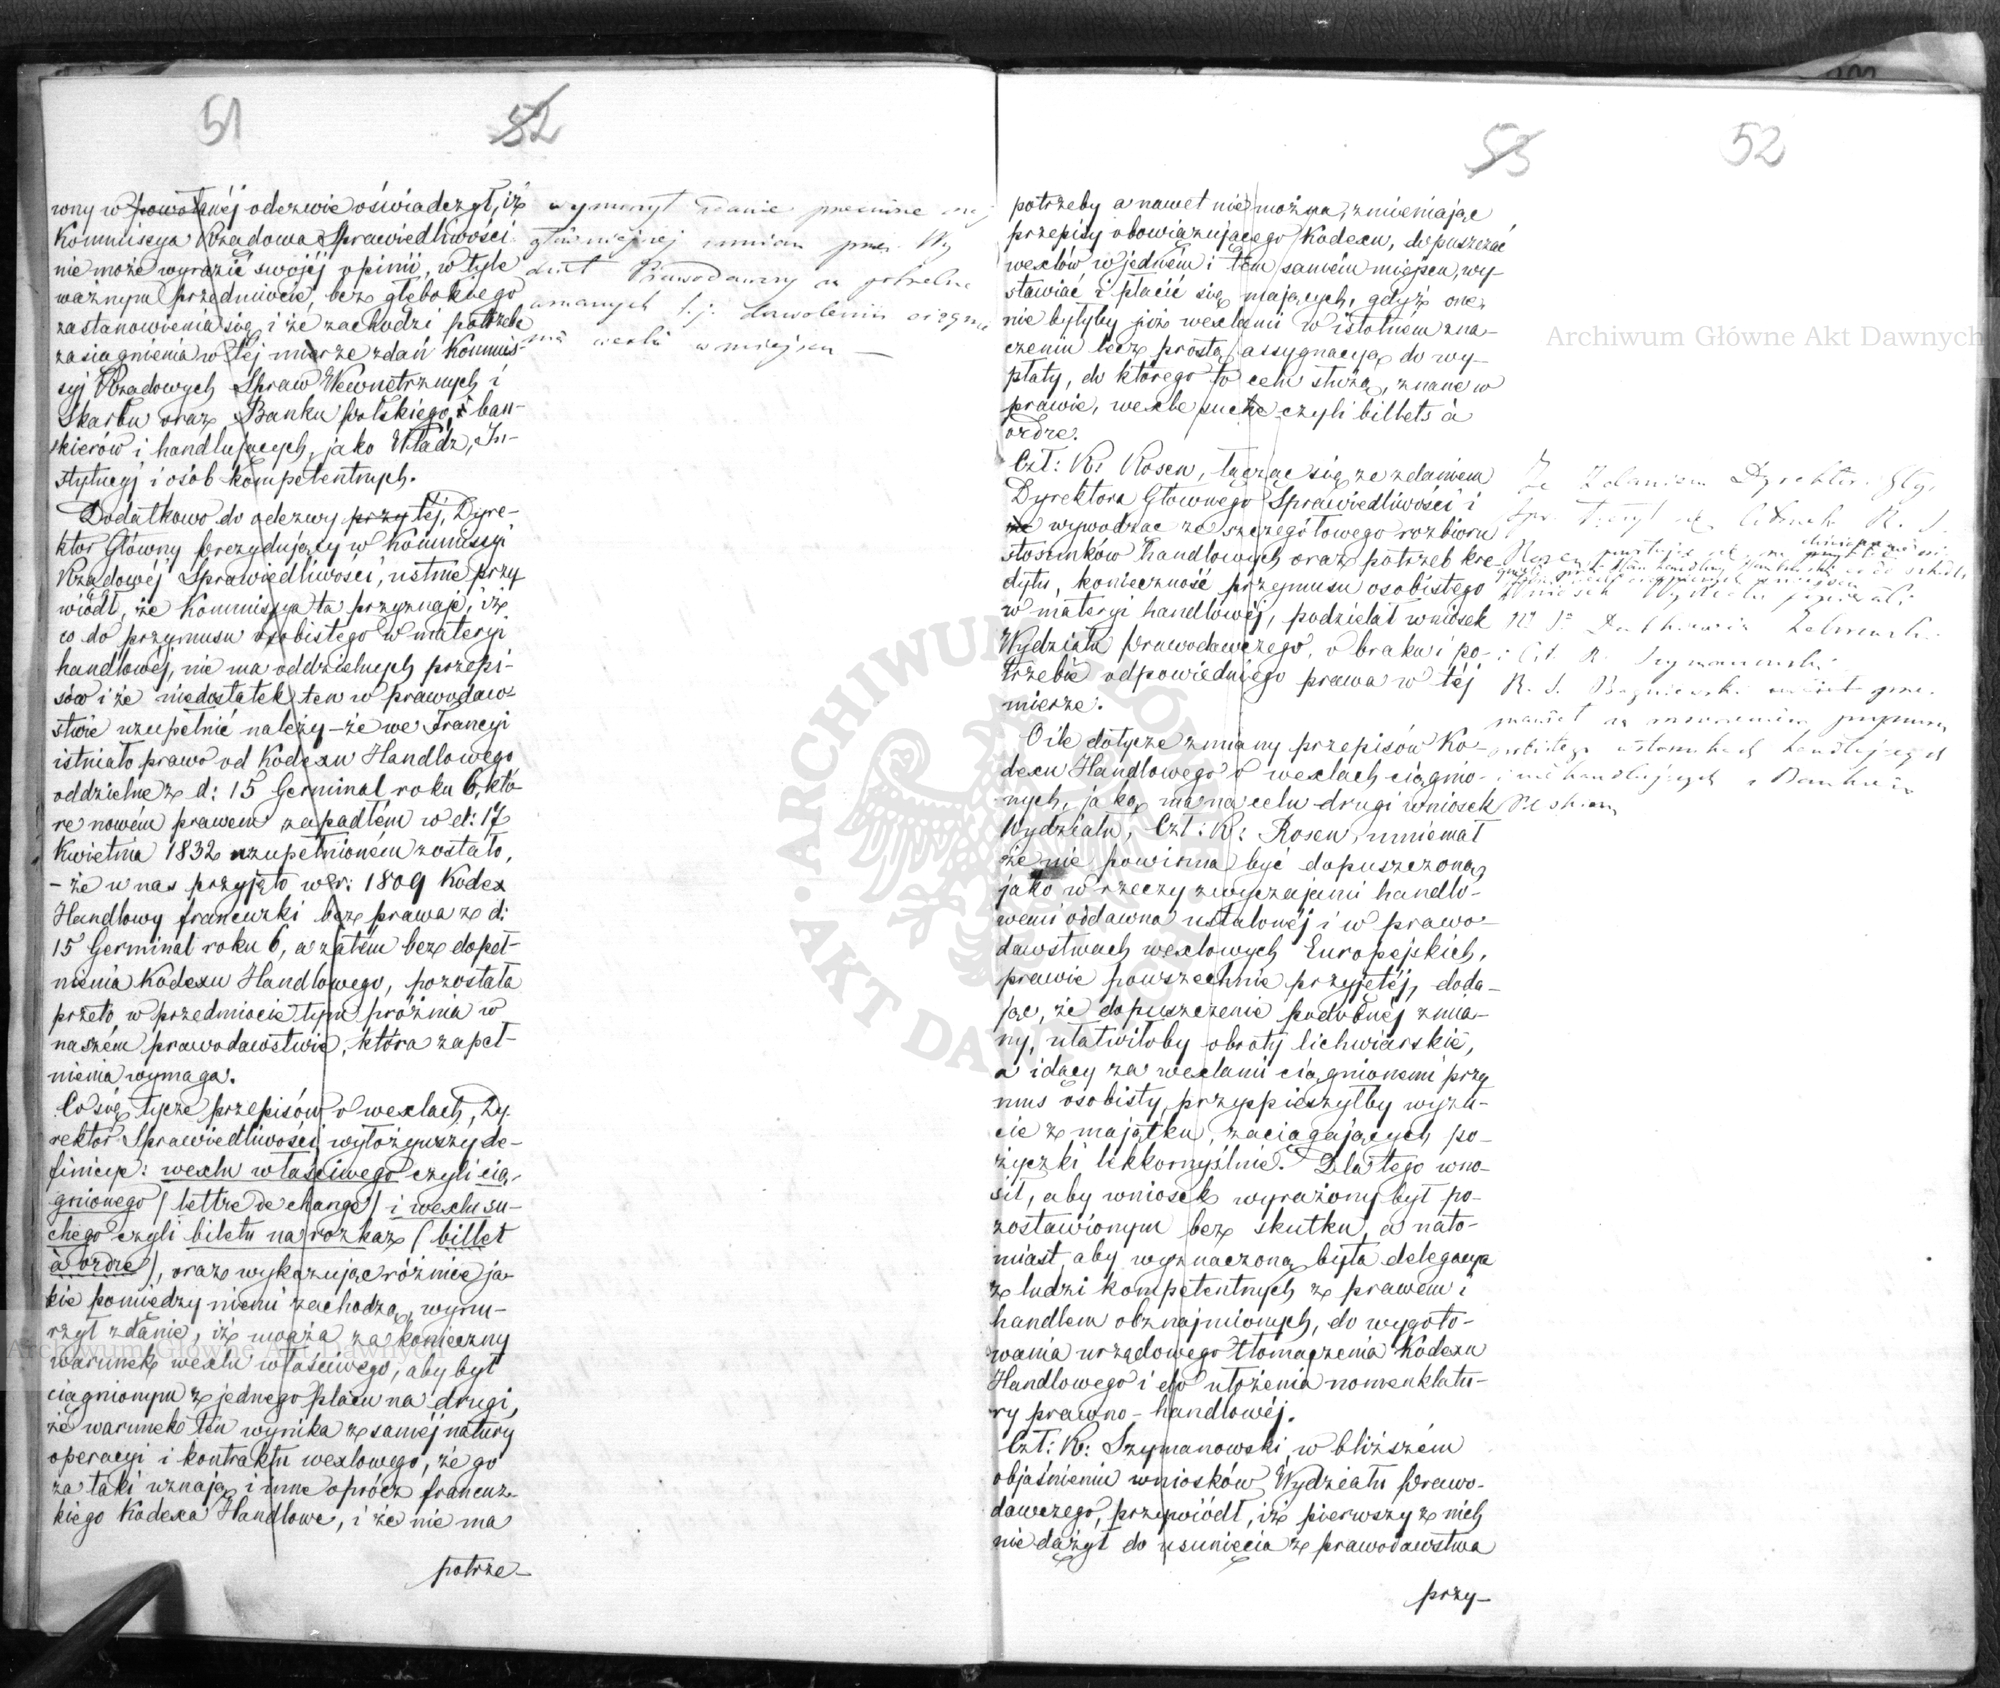 51
52
wny w powołanéj odezwie oświadczył, iż
Kommissya Rządowa Sprawiedliwości
nie może wyrazić swojéj opinii, w tyle
ważnym przedmiocie, bez głębokiego
zastanowienia się i że zachodzi potrzeba
zasiągnienia w téj mierze zdań Kommis-
syj Rządowych Spraw Wewnętrznych i
Skarbu oraz Banku Polskiego, i ban-
kierów i handlujących, jako Władz, In-
stytucyj i osób kompetentnych.
Dodatkowo do odezwy przy téj, Dyre-
ktor Główny Prezydujący w Kommissyi
Rządowéj Sprawiedliwości, ustnie przy
wiódł, że Kommissya ta przyznaje, iż
co do przymusu osobistego w materyi
handlowéj, nie ma oddzielnych przepi-
sów i że niedostatek ten w prawodaw-
stwie uzupełnić należy – że we Francyi
istniało prawo od Kodexu Handlowego
oddzielne z d: 15 Germinal roku 6, któ-
re nowém prawem zapadłém w d: 17
Kwietnia 1832 uzupełnioném zostało,
– że u nas przyjęto w r: 1809 Kodex
Handlowy francuzki bez prawa z d:
15 Germinal roku 6, a zatém bez dopeł-
nienia Kodexu Handlowego, pozostała
przeto w przedmiocie tym próżnia w
naszém prawodawstwie, która zapeł-
nienia wymaga.
Co się tycze przepisów o wexlach, Dy-
rektor Sprawiedliwości wyłożywszy de-
finicye: wexlu właściwego czyli cią-
gnionego (lettre de change) i wexlu su-
chego czyli biletu na rozkaz (billet
à ordre), oraz wykazując różnice ja-
kie pomiędzy niemi zachodzą, wynu-
rzył zdanie, iż uważa za konieczny
warunek wexlu właściwego, aby był
ciągnionym z jednego placu na drugi,
że warunek ten wynika z saméj natury
operacyi i kontraktu wexlowego, że go
za taki uznają i inne oprócz francuz-
kiego Kodexa Handlowe, i że nie ma
potrze-
wymienił zdanie przeciwne
zmian przez Wy
dział Prawodawczy za potrzebne
uznanych t. j. dozwolenia ciągnie
nia wexli w miejscu —
53
52
potrzeby a nawet nie można, zmieniając
przepisy obowiązującego Kodexu, dopuszczać
wexlów w jedném i tém samém miejscu, wy-
stawiać i płacić się mających, gdyż one
nie byłyby już wexlami w istotném zna-
czeniu lecz prostą assygnacyą do wy-
płaty, do którego to celu służą, znane w
prawie, wexle suche czyli billets à
ordre.
Czł: R: Rosen, łącząc się ze zdaniem
Dyrektora Głównego Sprawiedliwości i
wywodząc ze szczegółowego rozbioru
stosunków handlowych oraz potrzeb kre-
dytu, konieczność przymusu osobistego
w materyi handlowéj, podzielał wniosek
Wydziału Prawodawczego, o braku i po-
trzebie odpowiedniego prawa w téj
mierze.
O ile dotycze zmiany przepisów Ko-
dexu Handlowego o wexlach ciągnio-
nych, jaką ma na celu drugi wniosek
Wydziału, Czł: R: Rosen, mniemał
że nie powinna być dopuszczoną,
jako w rzeczy zwyczajami handlo-
wemi oddawna ustalonéj i w prawo-
dawstwach wexlowych Europejskich,
prawie powszechnie przyjętéj, doda-
jąc, że dopuszczenie podobnéj zmia-
ny, ułatwiłoby obroty lichwiarskie,
a idący za wexlami ciągnionemi przy
mus osobisty, przyspieszyłby wyzu-
cie z majątku, zaciągających po-
życzki lekkomyślnie. Dla tego wno-
sił, aby wniosek wyrażony był po-
zostawionym bez skutku, a nato-
miast, aby wyznaczoną była delegacya
z ludzi kompetentnych z prawem i
handlem obznajmionych, do wygoto-
wania urzędowego tłomaczenia Kodexu
Handlowego i do ułożenia nomenklatu-
ry prawno-handlowéj.
Czł: R: Szymanowski, w bliższém
objaśnieniu wniosków Wydziału Prawo-
dawczego, przywiódł, iż pierwszy z nich
nie dążył do usunięcia z prawodawstwa
przy-
Ze zdaniem Dyrektora Głów.
Spr. łączył się Członek R. S.
Rosen
wniosek Wydziału popierali
Dutkiewicz
i Czł. R. Szymanowski
R. S.
przymusu
osobistego w stosunkach handlujących
i nie handlujących z Bankiem
Polskim
Archiwum Główne Akt Dawnych
Archiwum Główne Akt Dawnych
ARCHIWUM GŁÓWNE AKT DAWNYCH